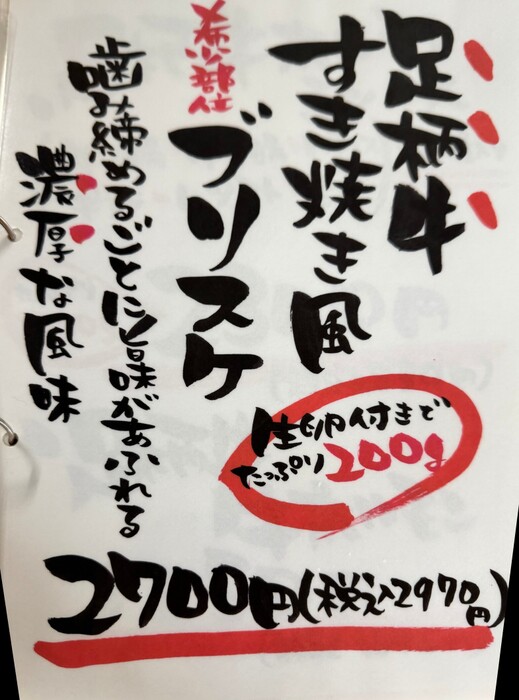 足柄牛
すき焼き風
希少部位
ブリスケ
噛み締めるごとに旨味があふれる
濃厚な風味
生卵付きで
たっぷり200g
2700円(税込2970円)